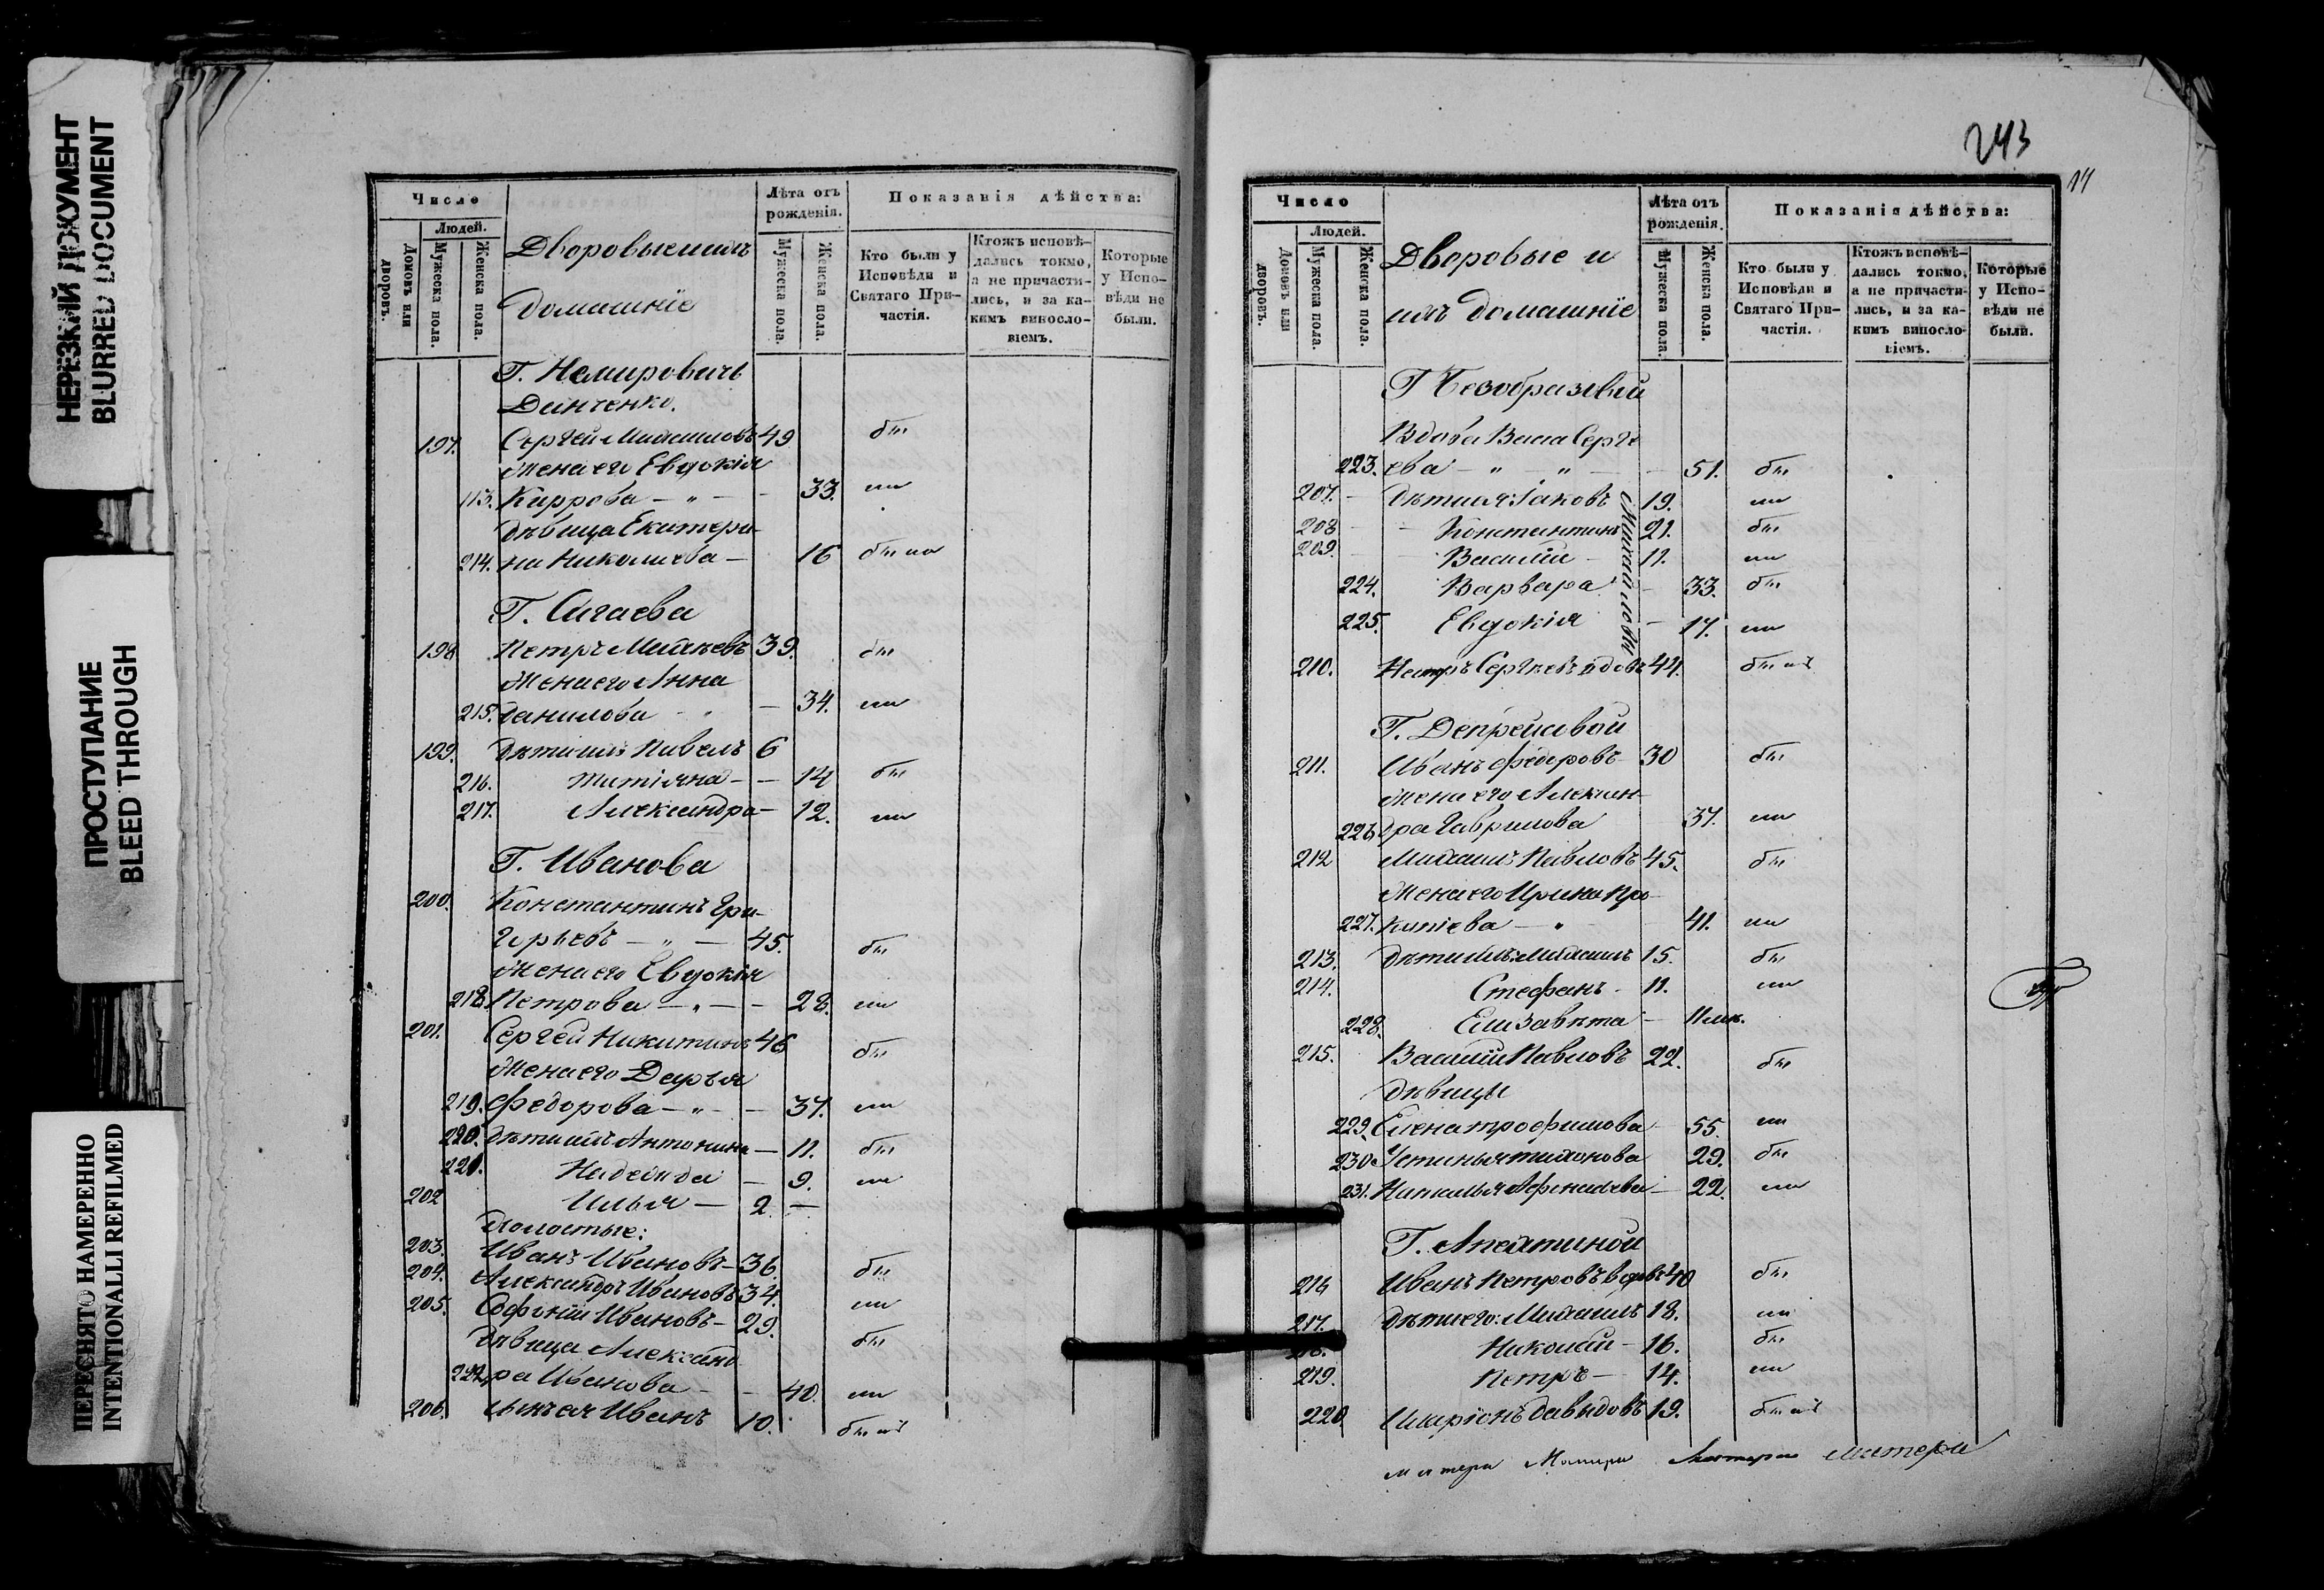 НЕРЕЗКИЙ ДОКУМЕНТ
BLURRED DOCUMENT
ПРОСТУПАНИЕ
BLEED THROUGH
ПЕРЕСНЯТО НАМЕРЕННО
INTENTIONALLI REFILMED
Число
Людей.
Домовъ или дворовъ.
Мужеска пола.
Женска пола.
Дворовые ихъ
домашніе
Лѣта отъ рожденія.
Мужеска пола.
Женска пола.
Показанія дѣйства:
Кто были у Исповѣди и Святаго Причастія.
Ктожъ исповѣдались токмо, а не причастились, и за какимъ винословіемъ.
Которые у Исповѣди не были.
Г. Немировичъ
Данченко.
197. Сергей Михаиловъ 49 бы
Жена его Евдокія
113. Киррова — " — 33. ли
дѣвица Екатери-
214. на Николаева — 16 были
Г. Сигаева
198 Петръ Михѣевъ 39. бы
Жена его Анна
215. Данилова — 34. ли
199. дѣти ихъ Павелъ 6
216. Татіяна — 14 бы
217. Александра — 12. ли
Г. Иванова
200. Константинъ Гри-
горьевъ — " — 45. бы
Жена его Евдокія
218. Петрова — " — 28. ли
201. Сергей Никитинъ 46 бы
Жена его Дарья
219. Федорова — " — 37. ли
220. дѣти ихъ Антонина — 11. бы
221. Надежда — 9. ли
202 Илья — 2 —
Холостые:
203. Иванъ Ивановъ — 36. бы
204. Александръ Ивановъ 34. ли
205. Ивановъ — 29. бы
дѣвица Александ
222. ра Иванова — 40. ли
206. сынъ ея Иванъ 10. былъ
243
14
Число
Людей.
Домовъ или дворовъ.
Мужеска пола.
Женска пола.
Дворовые и
ихъ домашніе
Лѣта отъ рожденія.
Мужеска пола.
Женска пола.
Показанія дѣйства:
Кто были у Исповѣди и Святаго Причастія.
Ктожъ исповѣдались токмо, а не причастились, и за какимъ винословіемъ.
Которые у Исповѣди не были.
Г Безобразовой
Вдова Васса Серге
223. ева — " — " — 51. бы
207. дѣти ея: Іаковъ 19. ли
208 Константинъ 21. бы
209. Василій 11. ли
224. Варвара — 33. бы
225. Евдокія — 17. ли
Михайловы
210. Петръ Сергѣевъ вдовъ 44. былъ
Г. Депрейсовой
211. Иванъ Федоровъ 30 бы
Жена его Алексан-
226 дра Гаврилова 37. ли
212 Михаилъ Павловъ 45. бы
Жена его Ирина Про-
227. копіева — " 41. ли
213. дѣти ихъ: Михаилъ 15. бы
214. Стефанъ 11. ли
228. Елизавета — 11 мѣс.
215. Василій Павловъ 22. бы
дѣвицы
229. Елена Трофимова 55. ли
230 Устинья Тихонова 29. бы
231. Наталья Афанасьева — 22. ли
Г. Апехтиной
216 Иванъ Петровъ вдовъ 40 бы
217. дѣти его: Михаилъ 18. ли
218. Николай — 16. бы
219. Петръ — 14. ли
220 Иларіонъ Давыдовъ 19. былъ
матери Матери Материи матери